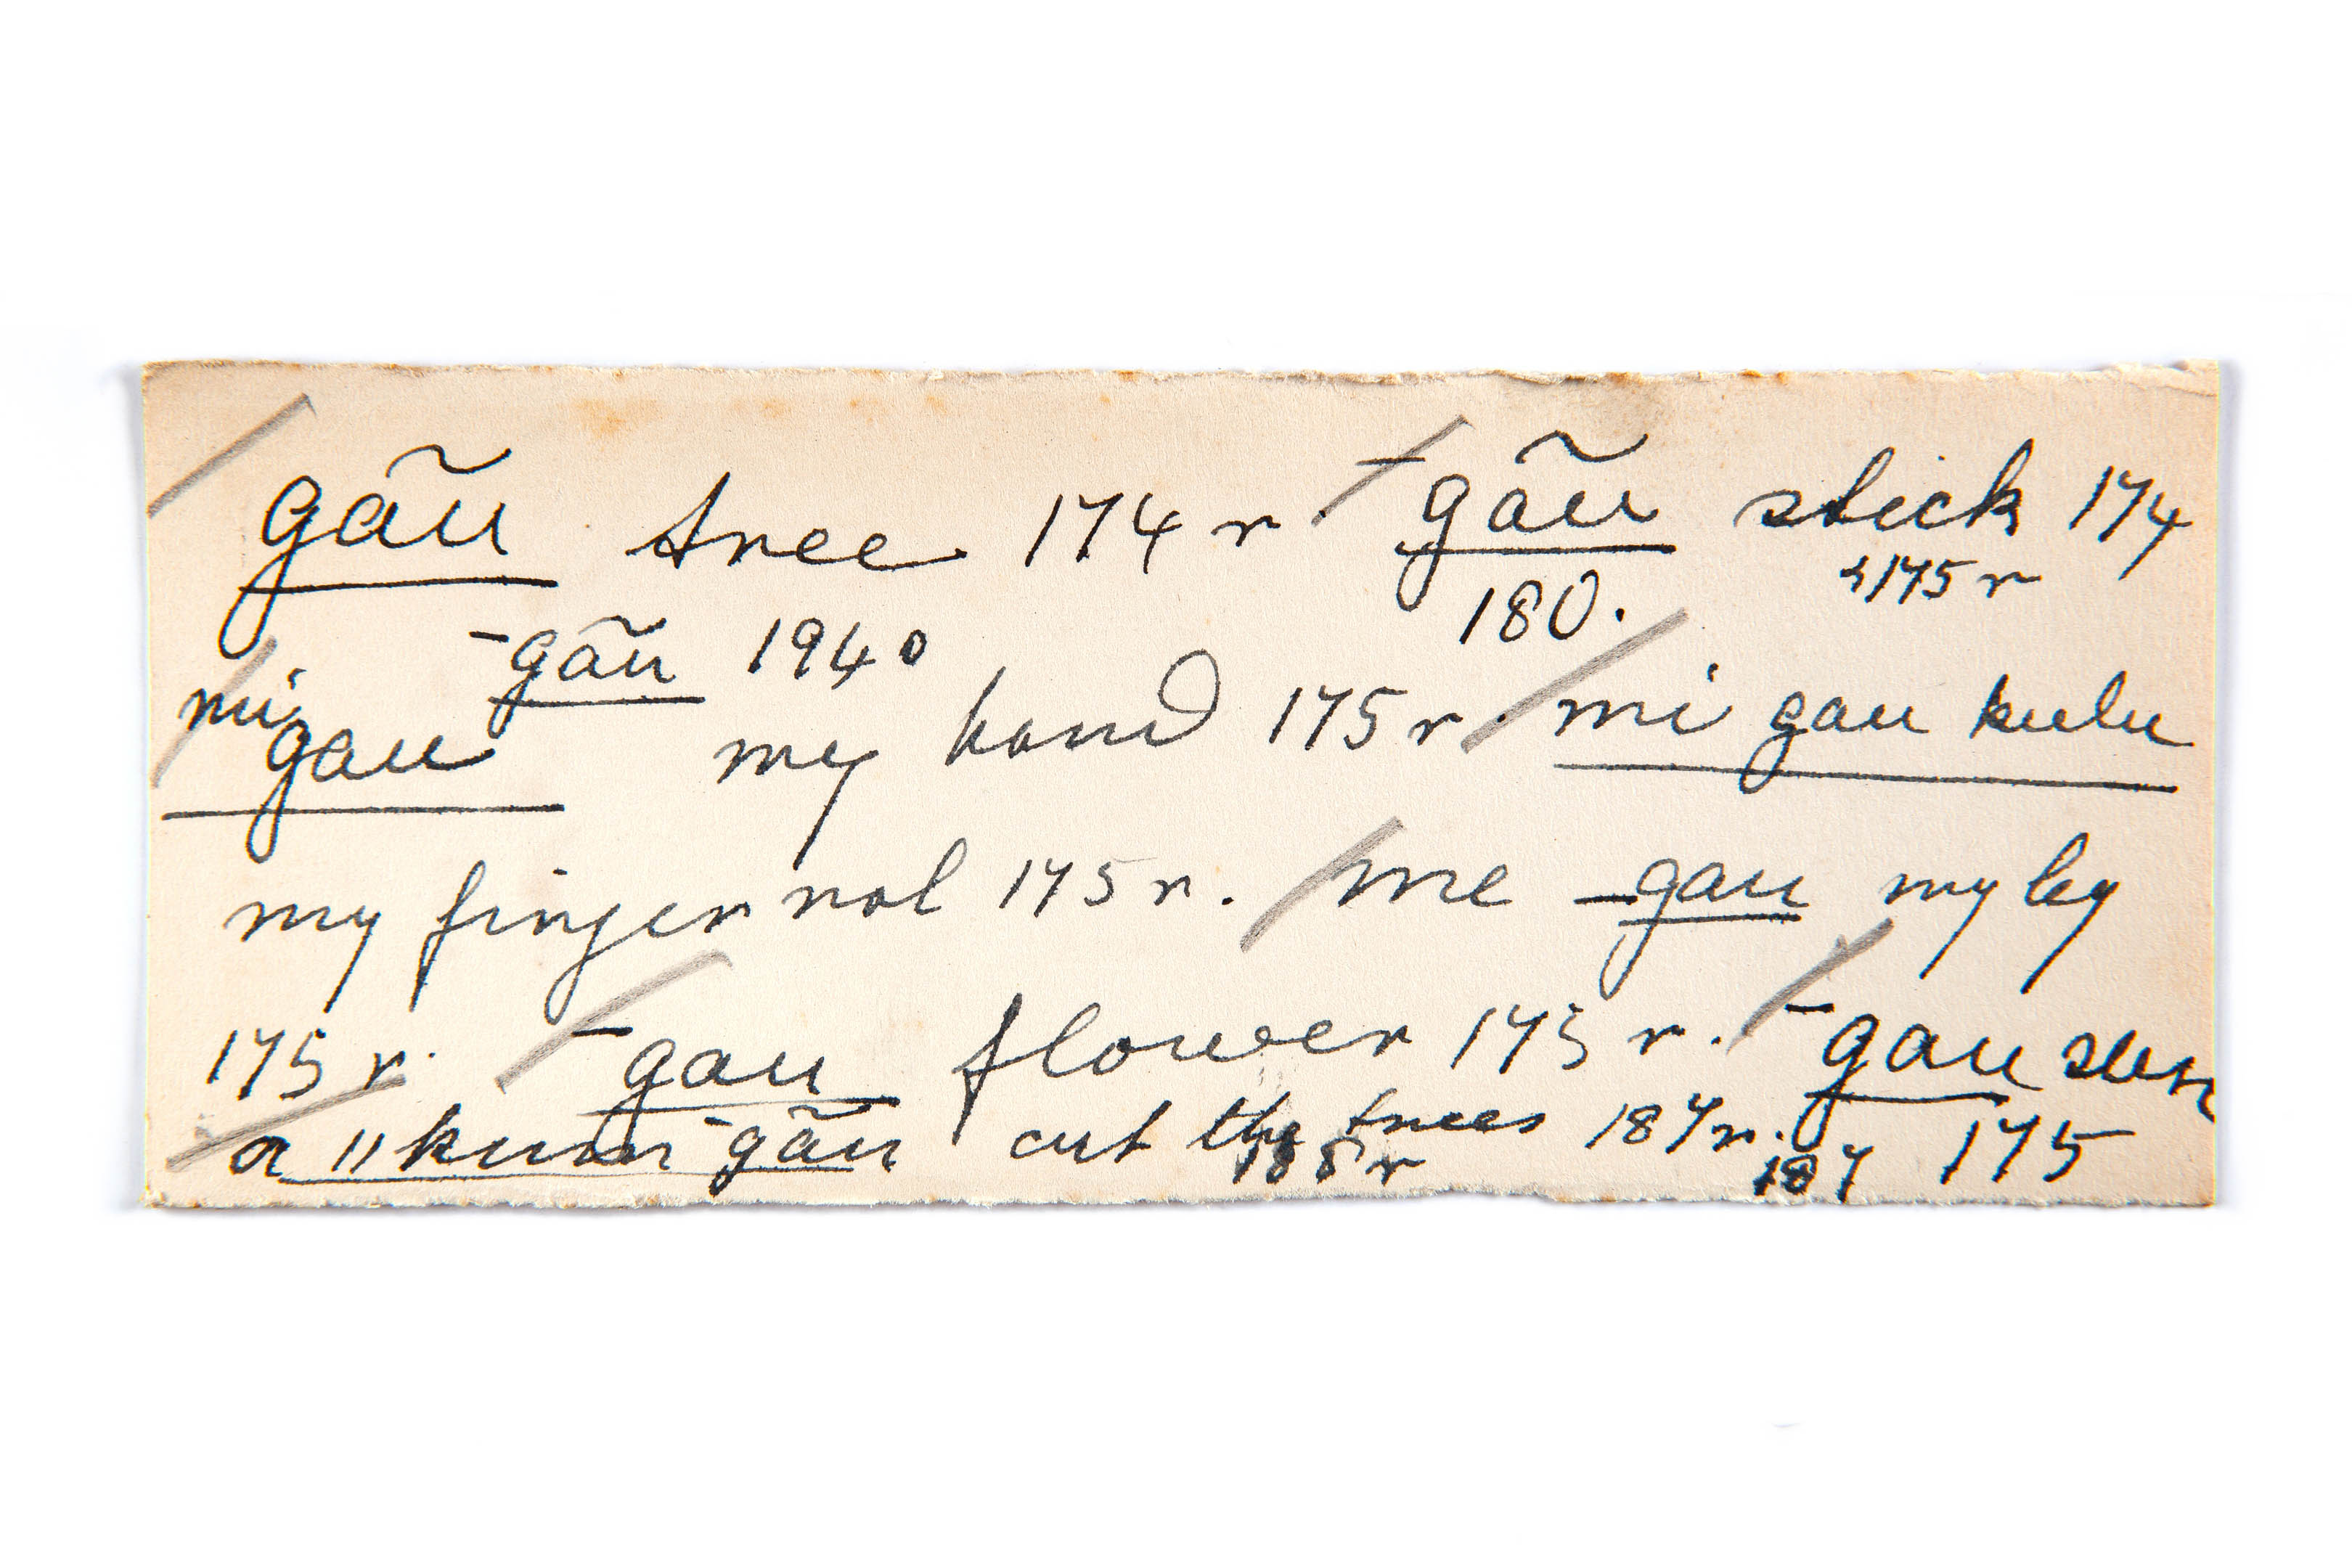 gãu tree 174 r ¯gãu stick 174
180. & 175 r
¯gãu 1940
mi gau my hand 175 r. mi gau kulu
my finger nal 175 r. me –gau my leg
175 r. ¯gau flower 175 r. ¯gau
a ǁkum ¯gãu cut the trees 187 r. 187 175
188 r